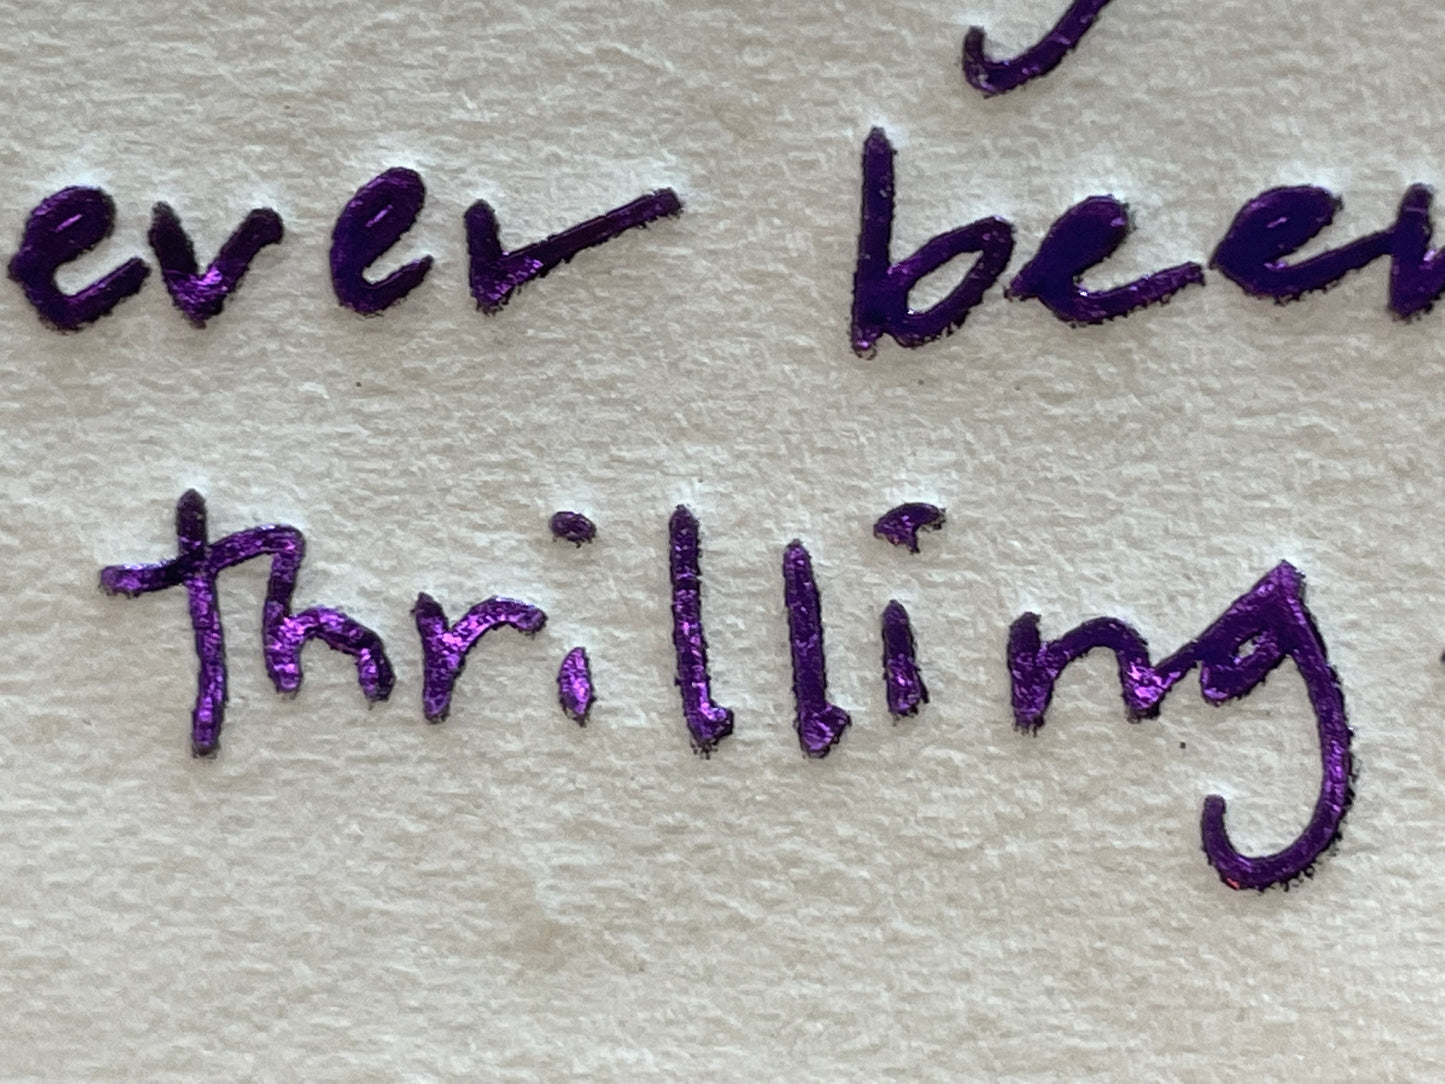 ever been
thrilling